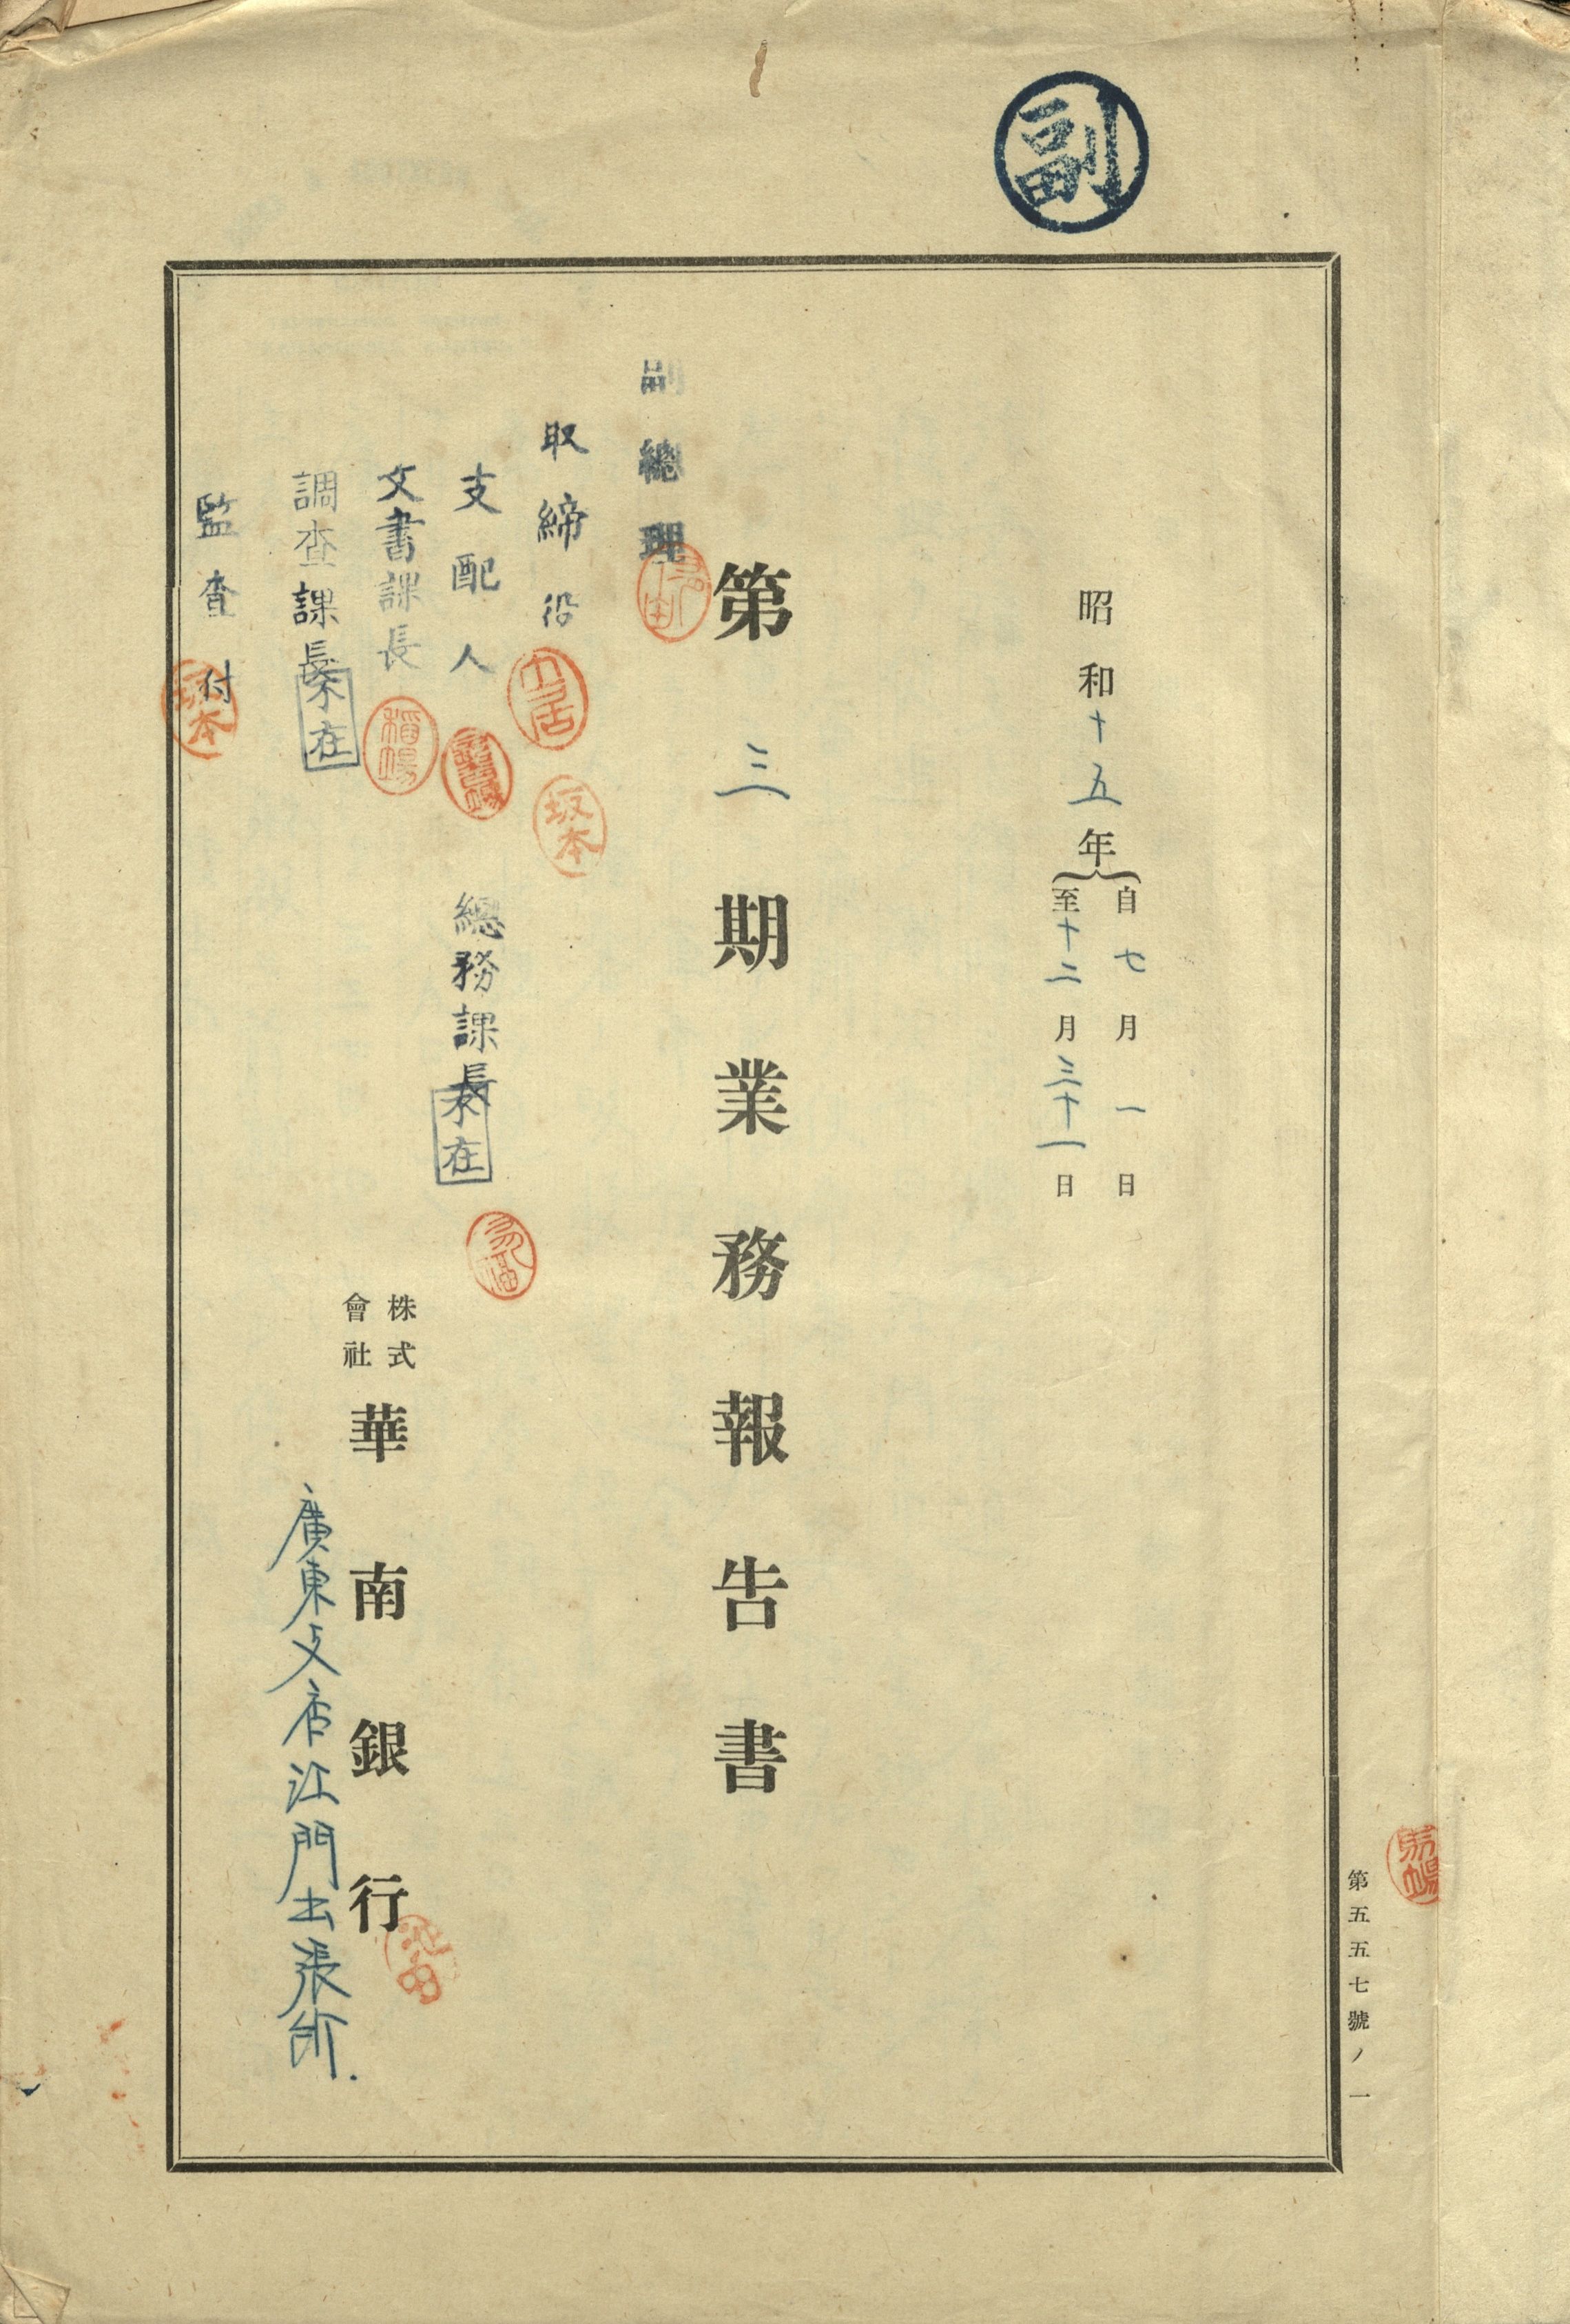 副
昭和十五年
自七月一日
至十二月三十一日
第三期業務報告書
副總理
取締役
坂本
支配人
總務課長
不在
文書課長
稲場
調査課長
不在
監査付
坂本
株式會社
華南銀行
廣東支店江門出張所.
第五五七號ノ一